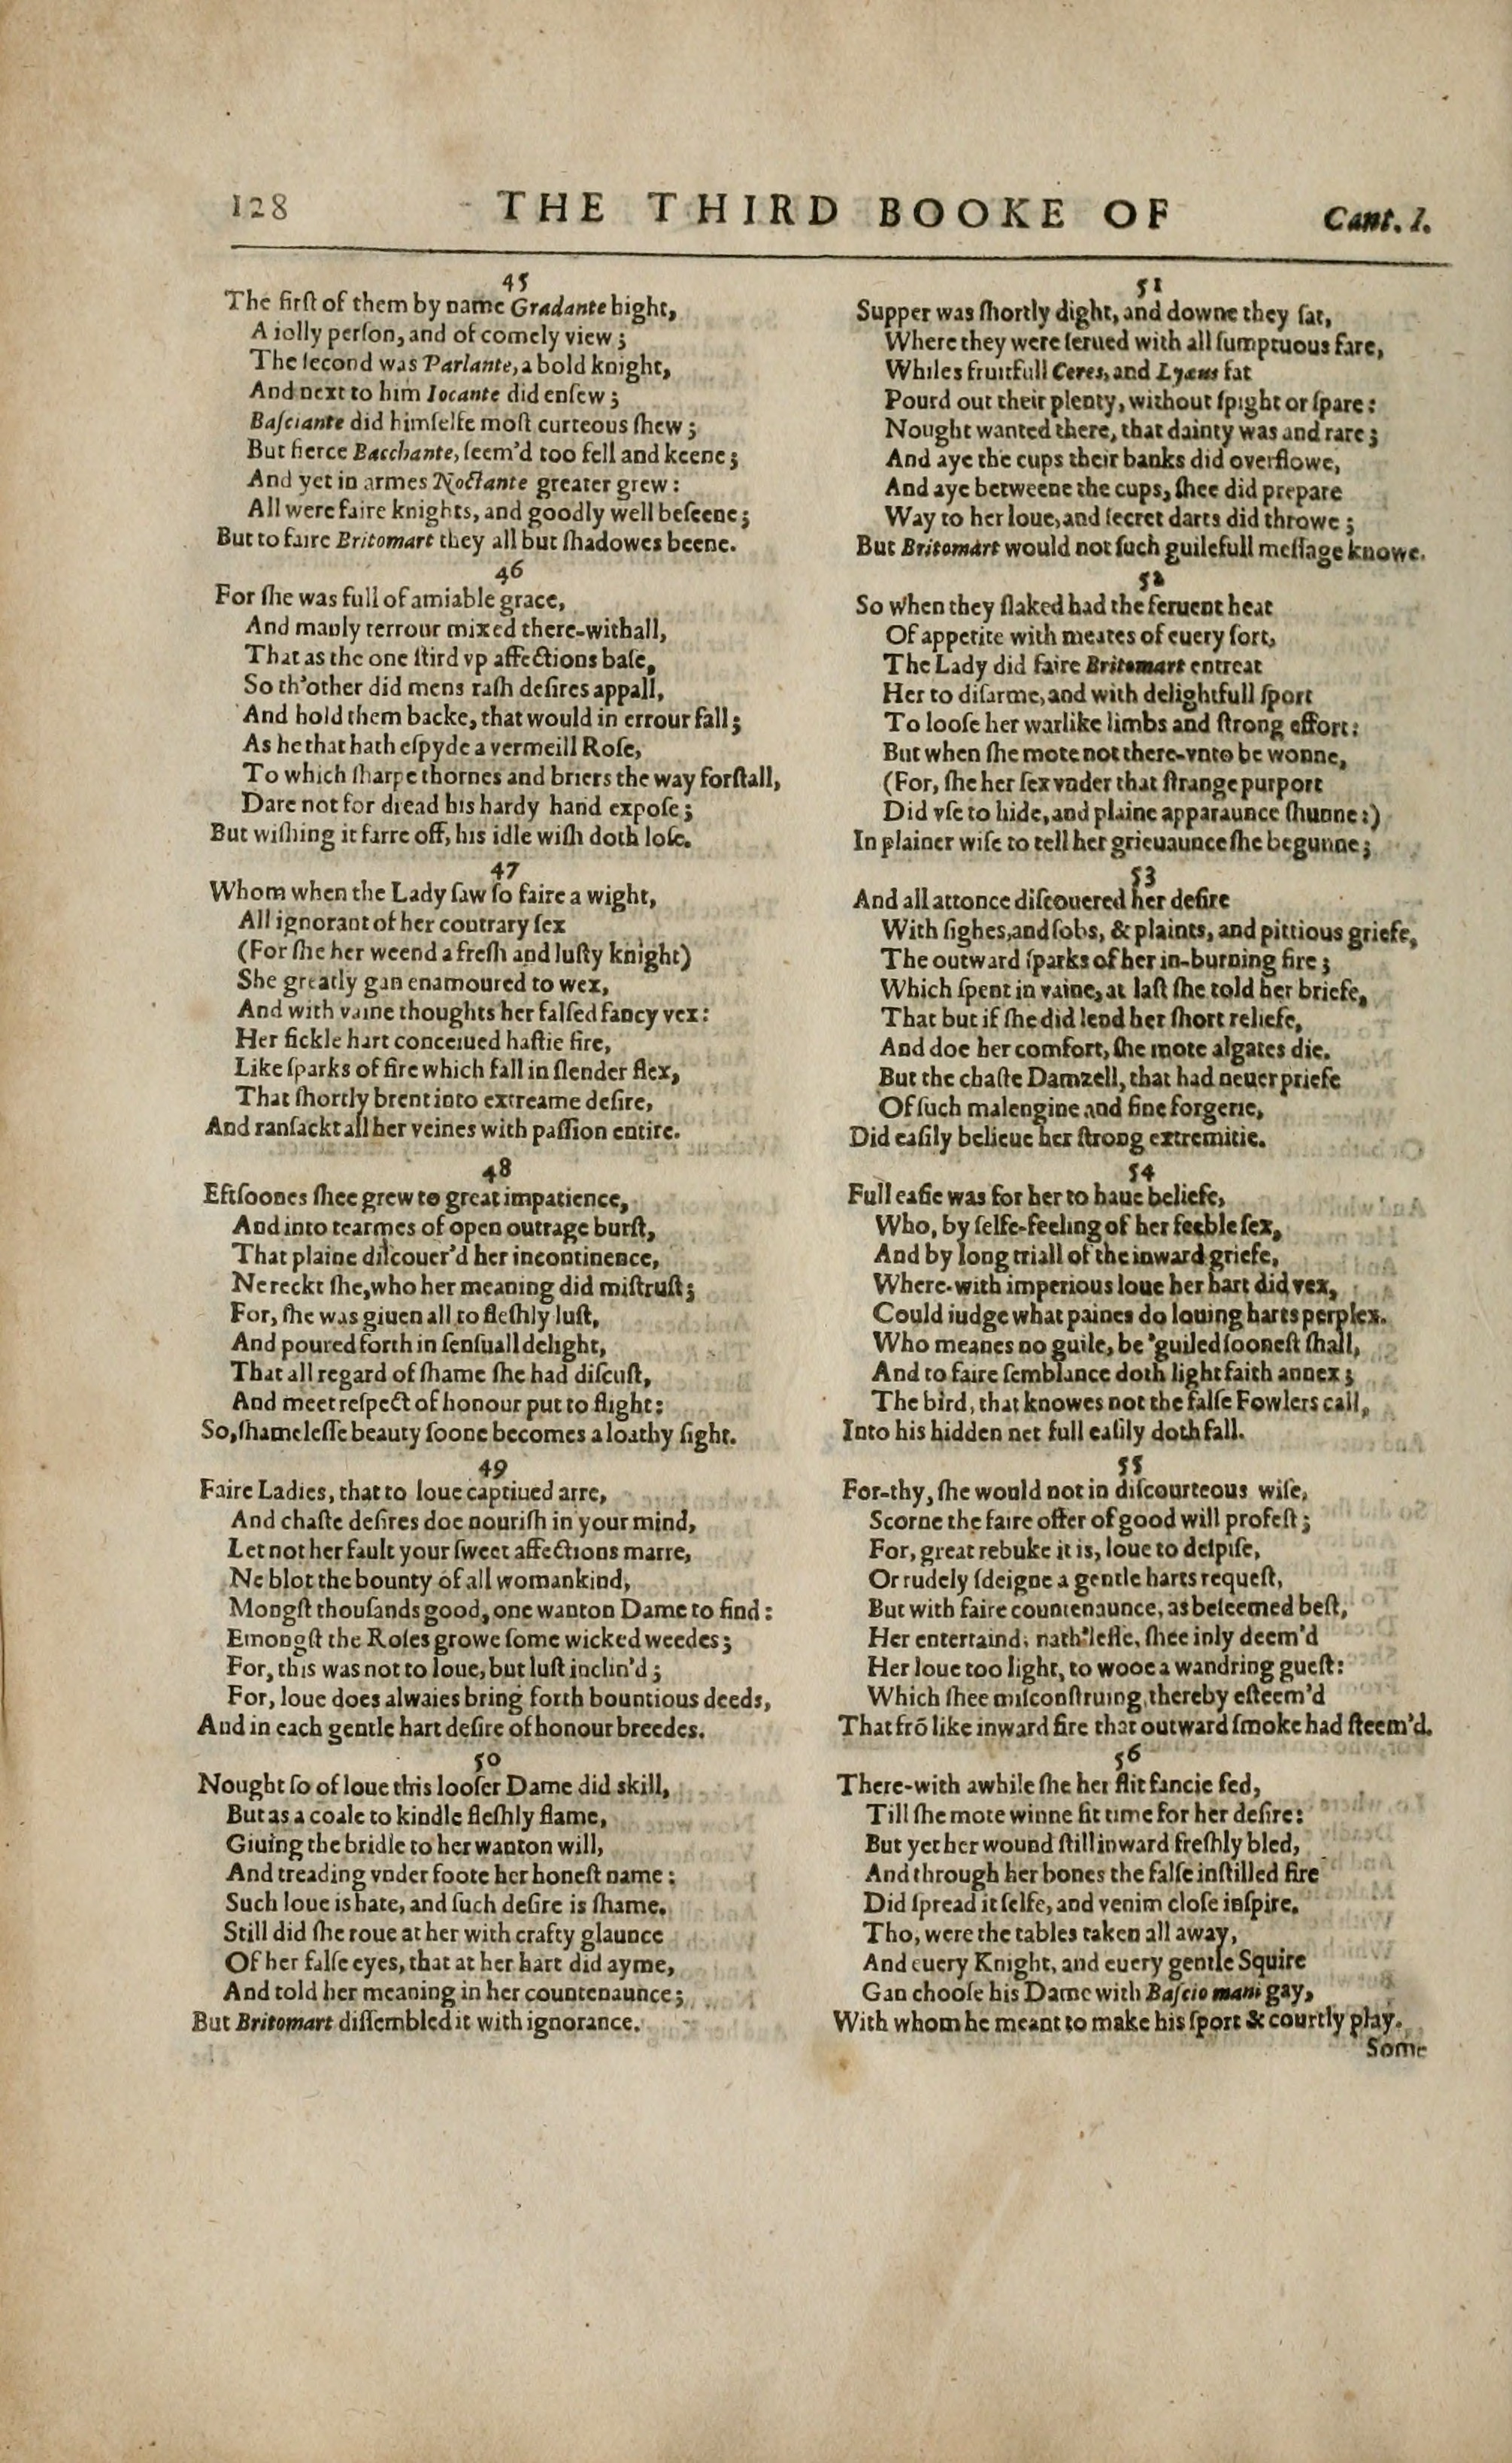 128 THE THIRD BOOKE OF Cant. I.
45
The firſt of them by name Gradante hight,
A iolly perſon, and of comely view;
The ſecond was Parlante, a bold knight,
And next to him Iocante did enſew;
Baſciante did himſelfe moſt curteous ſhew;
But fierce Bacchante, ſeem'd too fell and keene;
And yet in armes Noctante greater grew:
All were faire knights, and goodly well beſeene;
But to faire Britomart they all but ſhadowes beene.
46
For ſhe was full of amiable grace,
And manly terrour mixed there-withall,
That as the one ſtird vp affections baſe,
So th'other did mens raſh deſires appall,
And hold them backe, that would in errour fall;
As he that hath eſpyde a vermeill Roſe,
To which ſharpe thornes and briers the way forſtall,
Dare not for dread his hardy hand expoſe;
But wiſhing it farre off, his idle wiſh doth loſe.
47
Whom when the Lady ſaw ſo faire a wight,
All ignorant of her contrary ſex
(For ſhe her weend a freſh and luſty knight)
She greatly gan enamoured to wex,
And with vaine thoughts her falſed fancy vex:
Her fickle hart conceiued haſtie fire,
Like ſparks of fire which fall in ſlender flex,
That ſhortly brent into extreame deſire,
And ranſackt all her veines with paſſion entire.
48
Eftſoones ſhee grew to great impatience,
And into tearmes of open outrage burſt,
That plaine diſcouer'd her incontinence,
Ne reckt ſhe, who her meaning did miſtruſt;
For, ſhe was giuen all to fleſhly luſt,
And poured forth in ſenſuall delight,
That all regard of ſhame ſhe had diſcuſt,
And meet reſpect of honour put to flight:
So, ſhameleſſe beauty ſoone becomes a loathy ſight.
49
Faire Ladies, that to loue captiued arre,
And chaſte deſires doe nouriſh in your mind,
Let not her fault your ſweet affections marre,
Ne blot the bounty of all womankind,
Mongſt thouſands good, one wanton Dame to find:
Emongſt the Roſes growe ſome wicked weedes;
For, this was not to loue, but luſt inclin'd;
For, loue does alwaies bring forth bountious deeds,
And in each gentle hart deſire of honour breedes.
50
Nought ſo of loue this looſer Dame did skill,
But as a coale to kindle fleſhly flame,
Giuing the bridle to her wanton will,
And treading vnder foote her honeſt name:
Such loue is hate, and ſuch deſire is ſhame.
Still did ſhe roue at her with crafty glaunce
Of her falſe eyes, that at her hart did ayme,
And told her meaning in her countenaunce;
But Britomart diſſembled it with ignorance.
51
Supper was ſhortly dight, and downe they ſat,
Where they were ſerued with all ſumptuous fare,
Whiles fruitfull Ceres, and Lyæus fat
Pourd out their plenty, without ſpight or ſpare:
Nought wanted there, that dainty was and rare;
And aye the cups their banks did overflowe,
And aye betweene the cups, ſhee did prepare
Way to her loue, and ſecret darts did throwe;
But Britomart would not ſuch guilefull meſſage knowe.
52
So when they ſlaked had the feruent heat
Of appetite with meates of euery ſort,
The Lady did faire Britomart entreat
Her to diſarme, and with delightfull ſport
To looſe her warlike limbs and ſtrong effort:
But when ſhe mote not there-vnto be wonne,
(For, ſhe her ſex vnder that ſtrange purport
Did vſe to hide, and plaine apparaunce ſhunne:)
In plainer wiſe to tell her grieuaunce ſhe begunne;
53
And all attonce diſcouered her deſire
With ſighes, and ſobs, & plaints, and pittious griefe,
The outward ſparks of her in-burning fire;
Which ſpent in vaine, at laſt ſhe told her briefe,
That but if ſhe did lend her ſhort reliefe,
And doe her comfort, ſhe mote algates die.
But the chaſte Damzell, that had neuer priefe
Of ſuch malengine and fine forgerie,
Did eaſily belieue her ſtrong extremitie.
54
Full eaſie was for her to haue beliefe,
Who, by ſelfe-feeling of her feeble ſex,
And by long triall of the inward griefe,
Where-with imperious loue her hart did vex,
Could iudge what paines do louing harts perplex.
Who meanes no guile, be 'guiled ſooneſt ſhall,
And to faire ſemblance doth light faith annex;
The bird, that knowes not the falſe Fowlers call,
Into his hidden net full eaſily doth fall.
55
For-thy, ſhe would not in diſcourteous wiſe,
Scorne the faire offer of good will profeſt;
For, great rebuke it is, loue to deſpiſe,
Or rudely ſdeigne a gentle harts requeſt,
But with faire countenaunce, as beſeemed beſt,
Her entertaind; nath'leſſe, ſhee inly deem'd
Her loue too light, to wooe a wandring gueſt:
Which ſhee miſconſtruing, thereby eſteem'd
That frõ like inward fire that outward ſmoke had ſteem'd.
56
There-with awhile ſhe her flit fancie fed,
Till ſhe mote winne fit time for her deſire:
But yet her wound ſtill inward freſhly bled,
And through her bones the falſe inſtilled fire
Did ſpread it ſelfe, and venim cloſe inſpire.
Tho, were the tables taken all away,
And euery Knight, and euery gentle Squire
Gan chooſe his Dame with Baſcio mani gay,
With whom he meant to make his ſport & courtly play.
Some